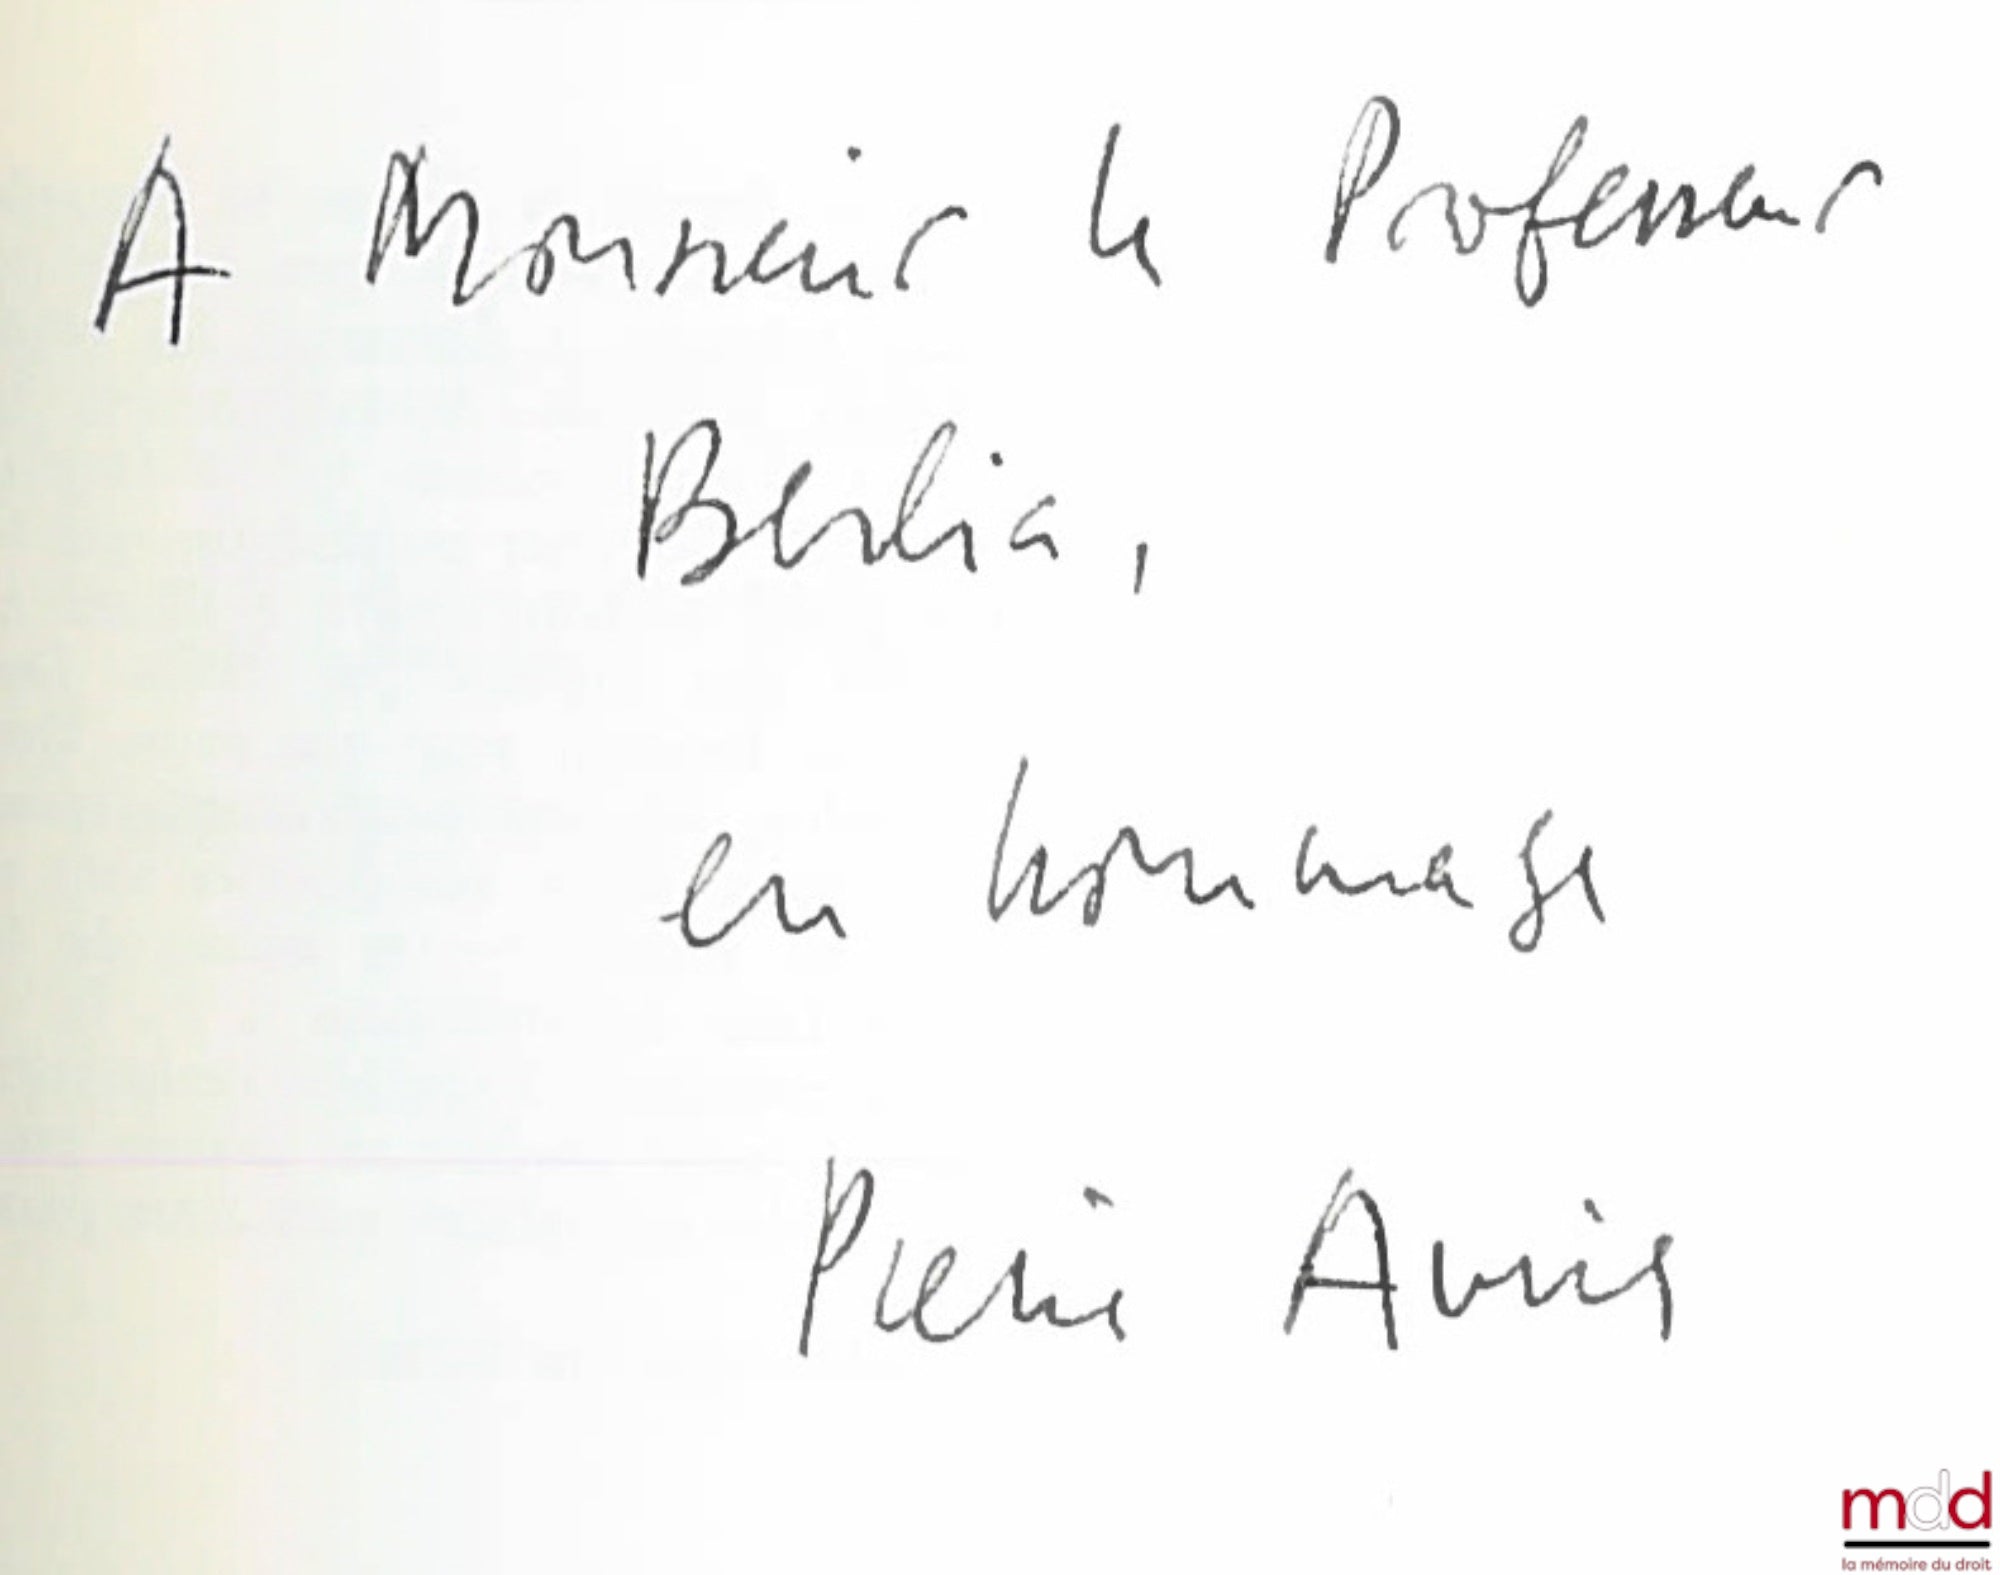 A Monsieur le Professeur
Berlia,
en hommage
Pierre Avril
mdd
la mémoire du droit